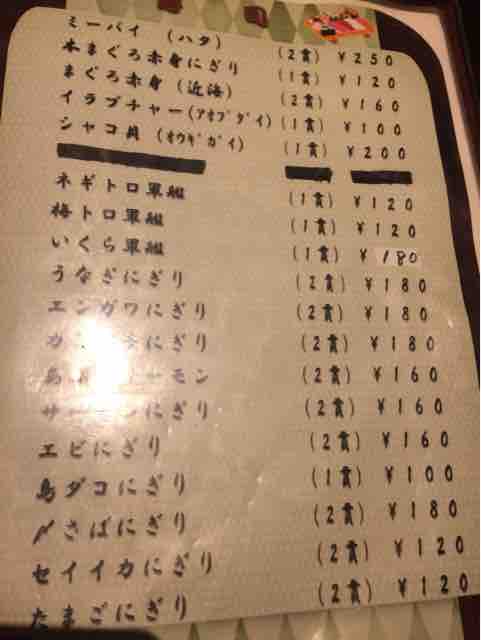 ミーバイ (ハタ) (2貫) ¥250
本まぐろ赤身にぎり (1貫) ¥120
まぐろ赤身 (近海) (2貫) ¥160
イラブチャー(アオブダイ) (1貫) ¥100
シャコ貝 (オウギガイ) (1貫) ¥200
ネギトロ軍艦 (1貫) ¥120
梅トロ軍艦 (1貫) ¥120
いくら軍艦 (1貫) ¥180
うなぎにぎり (2貫) ¥180
エンガワにぎり (2貫) ¥180
にぎり (2貫) ¥180
ーモン (2貫) ¥160
サーモンにぎり (2貫) ¥160
エビにぎり (2貫) ¥160
島ダコにぎり (1貫) ¥100
〆さばにぎり (2貫) ¥180
セイイカにぎり (2貫) ¥120
たまごにぎり (2貫) ¥120